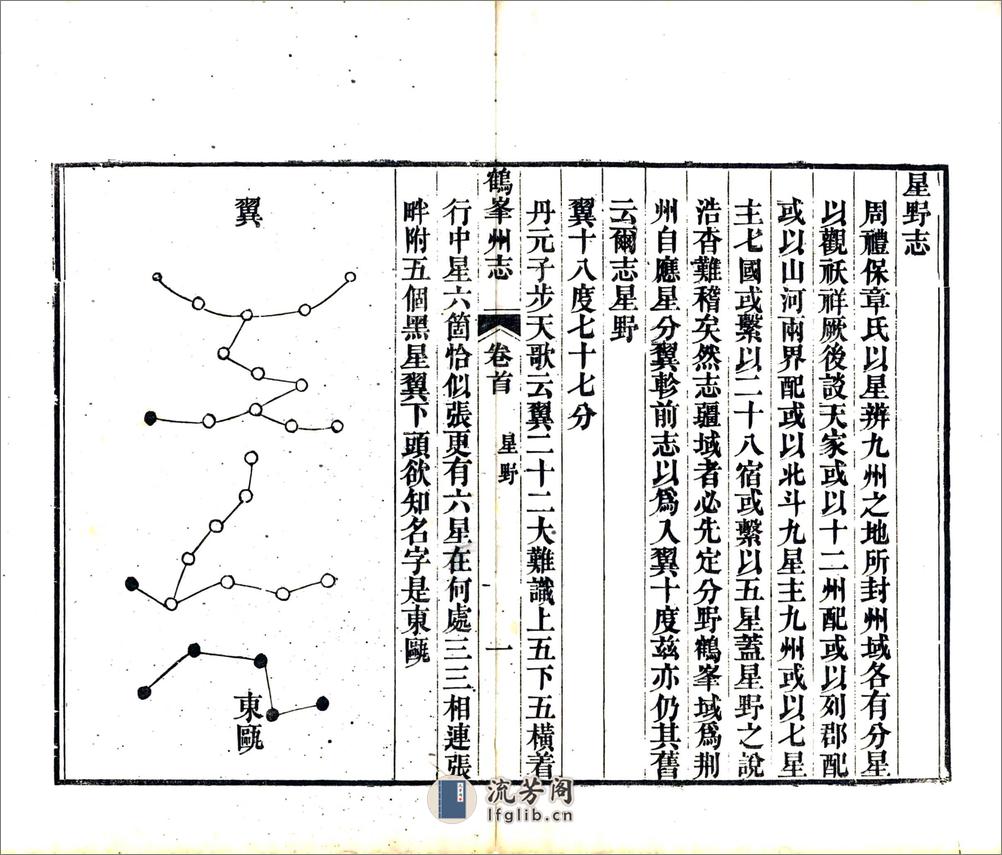 星野志
周禮保章氏以星辨九州之地所封州域各有分星
以觀祅祥厥後談天家或以十二州配或以列郡配
或以山河兩界配或以北斗九星主九州或以七星
主七國或繫以二十八宿或繫以五星蓋星野之說
浩杳難稽矣然志疆域者必先定分野鶴峯域爲荆
州自應星分翼軫前志以爲入翼十度茲亦仍其舊
云爾志星野
翼十八度七十七分
丹元子步天歌云翼二十二大難識上五下五橫着
鶴峯州志
卷首
星野
一
行中星六箇恰似張更有六星在何處三三相連張
畔附五個黑星翼下頭欲知名字是東甌
翼
東甌
流芳阁
lfglib.cn